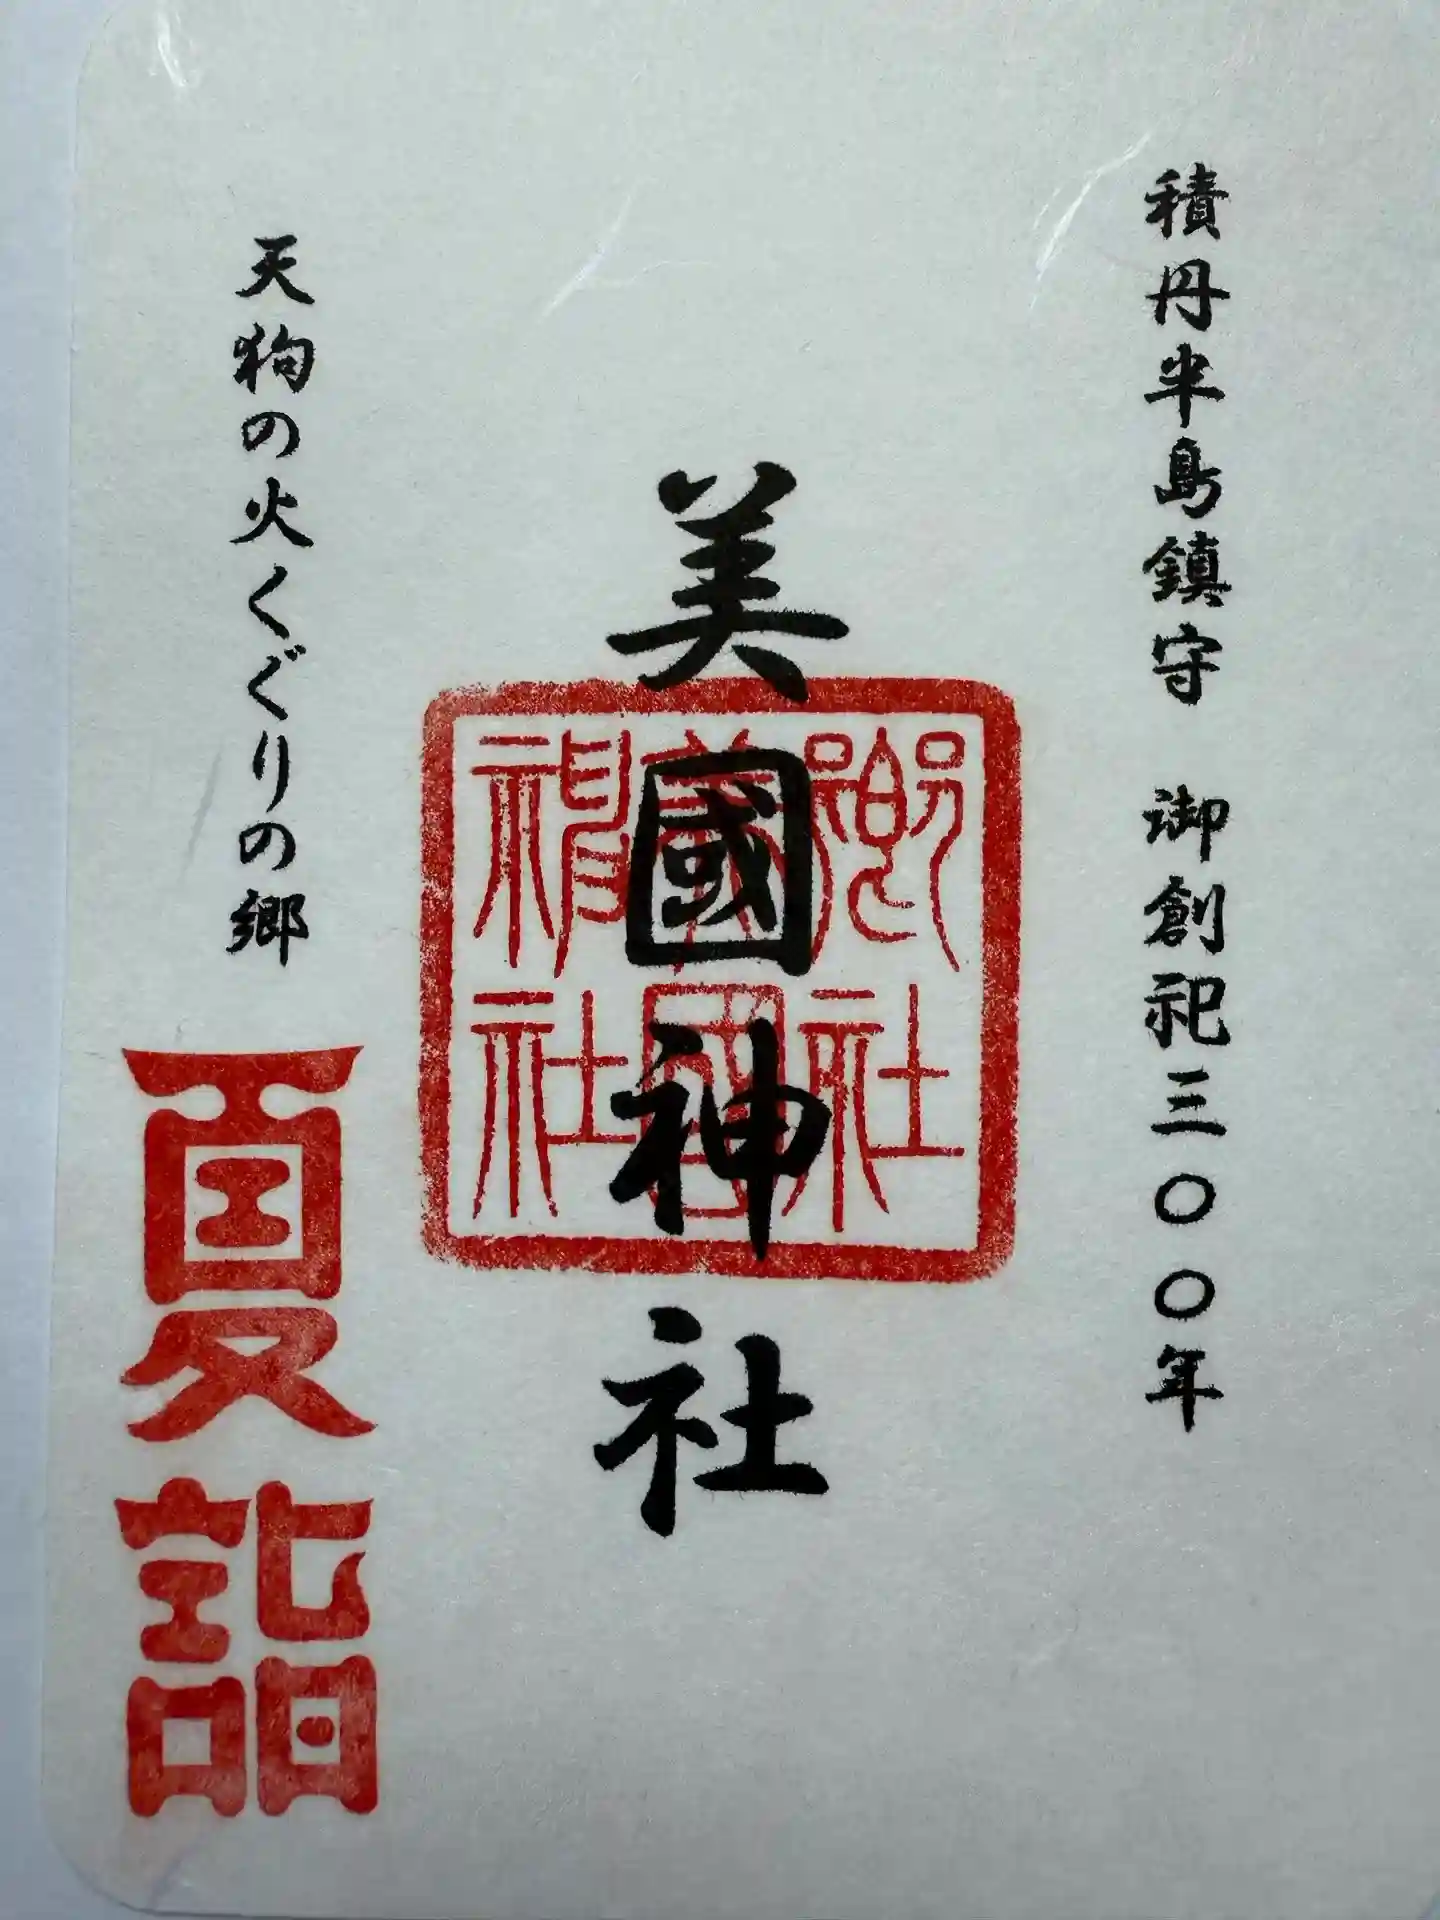 積丹半島鎮守　御創祀三〇〇年
美國神社
天狗の火くぐりの郷
夏詣